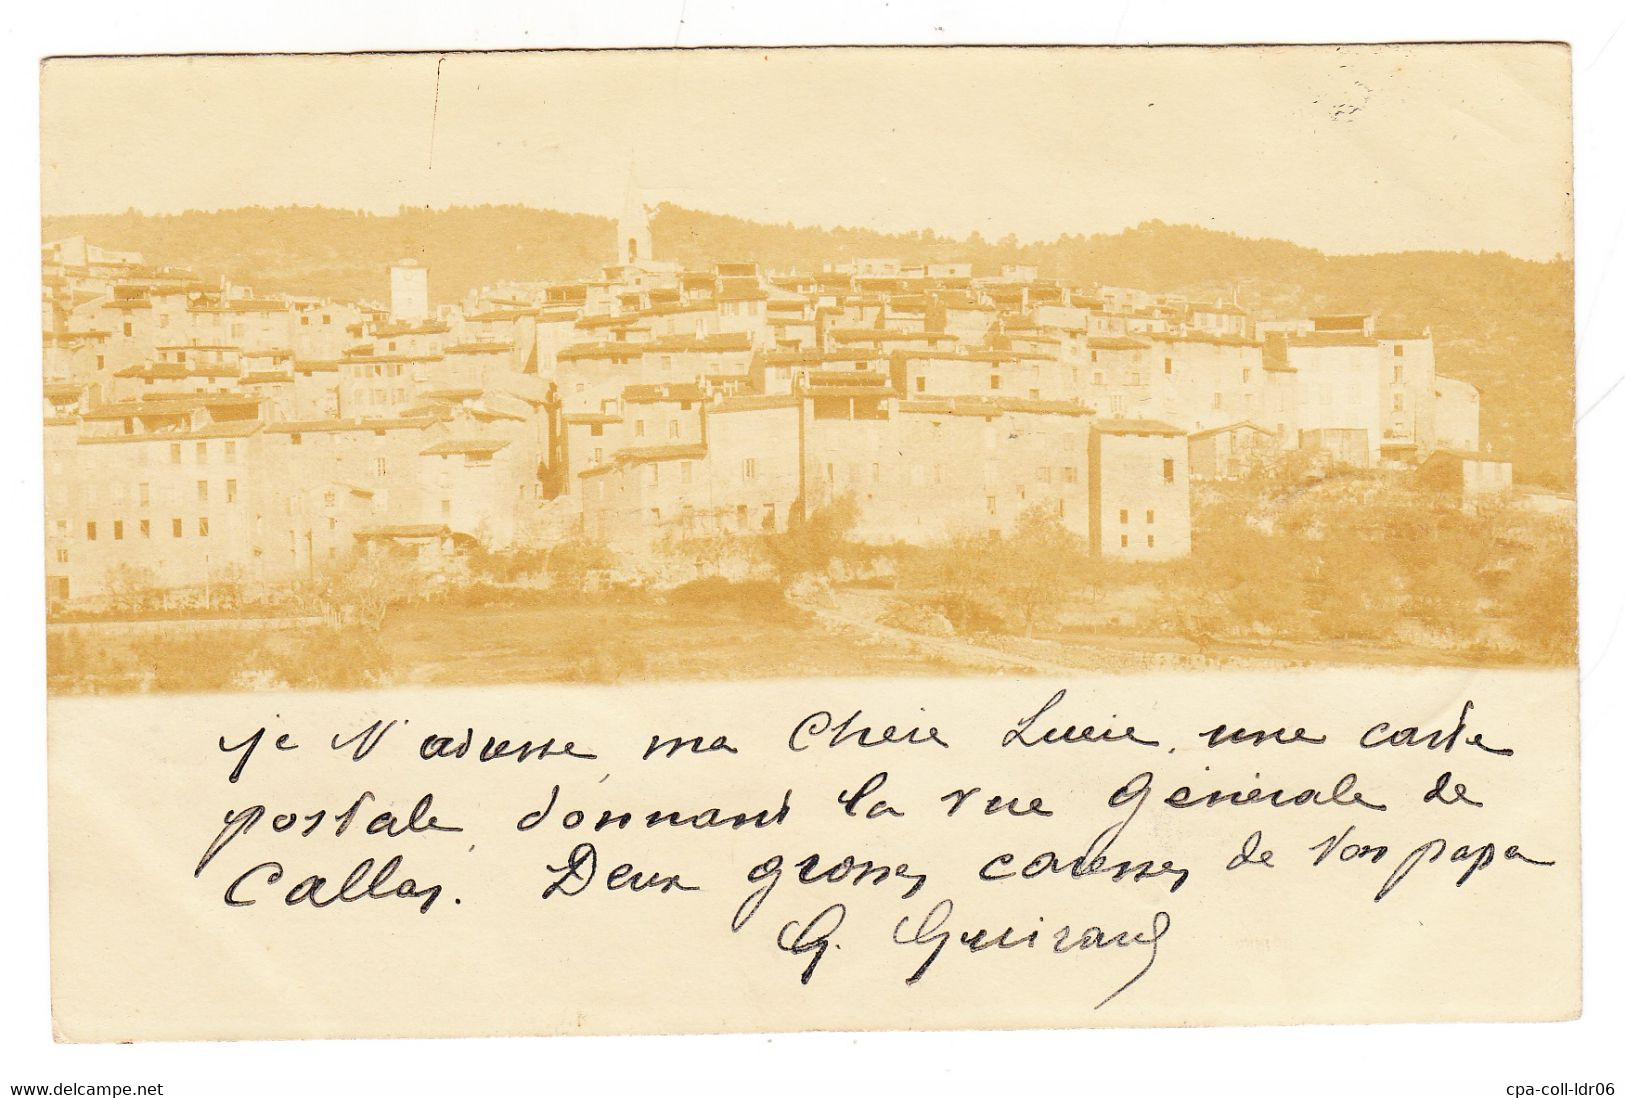 je t'adresse, ma Chère Lucie, une carte
postale, donnant la vue Générale de
Callas. Deux grosses caresses de ton papa
G. Guirand
www.delcampe.net
cpa-coll-ldr06